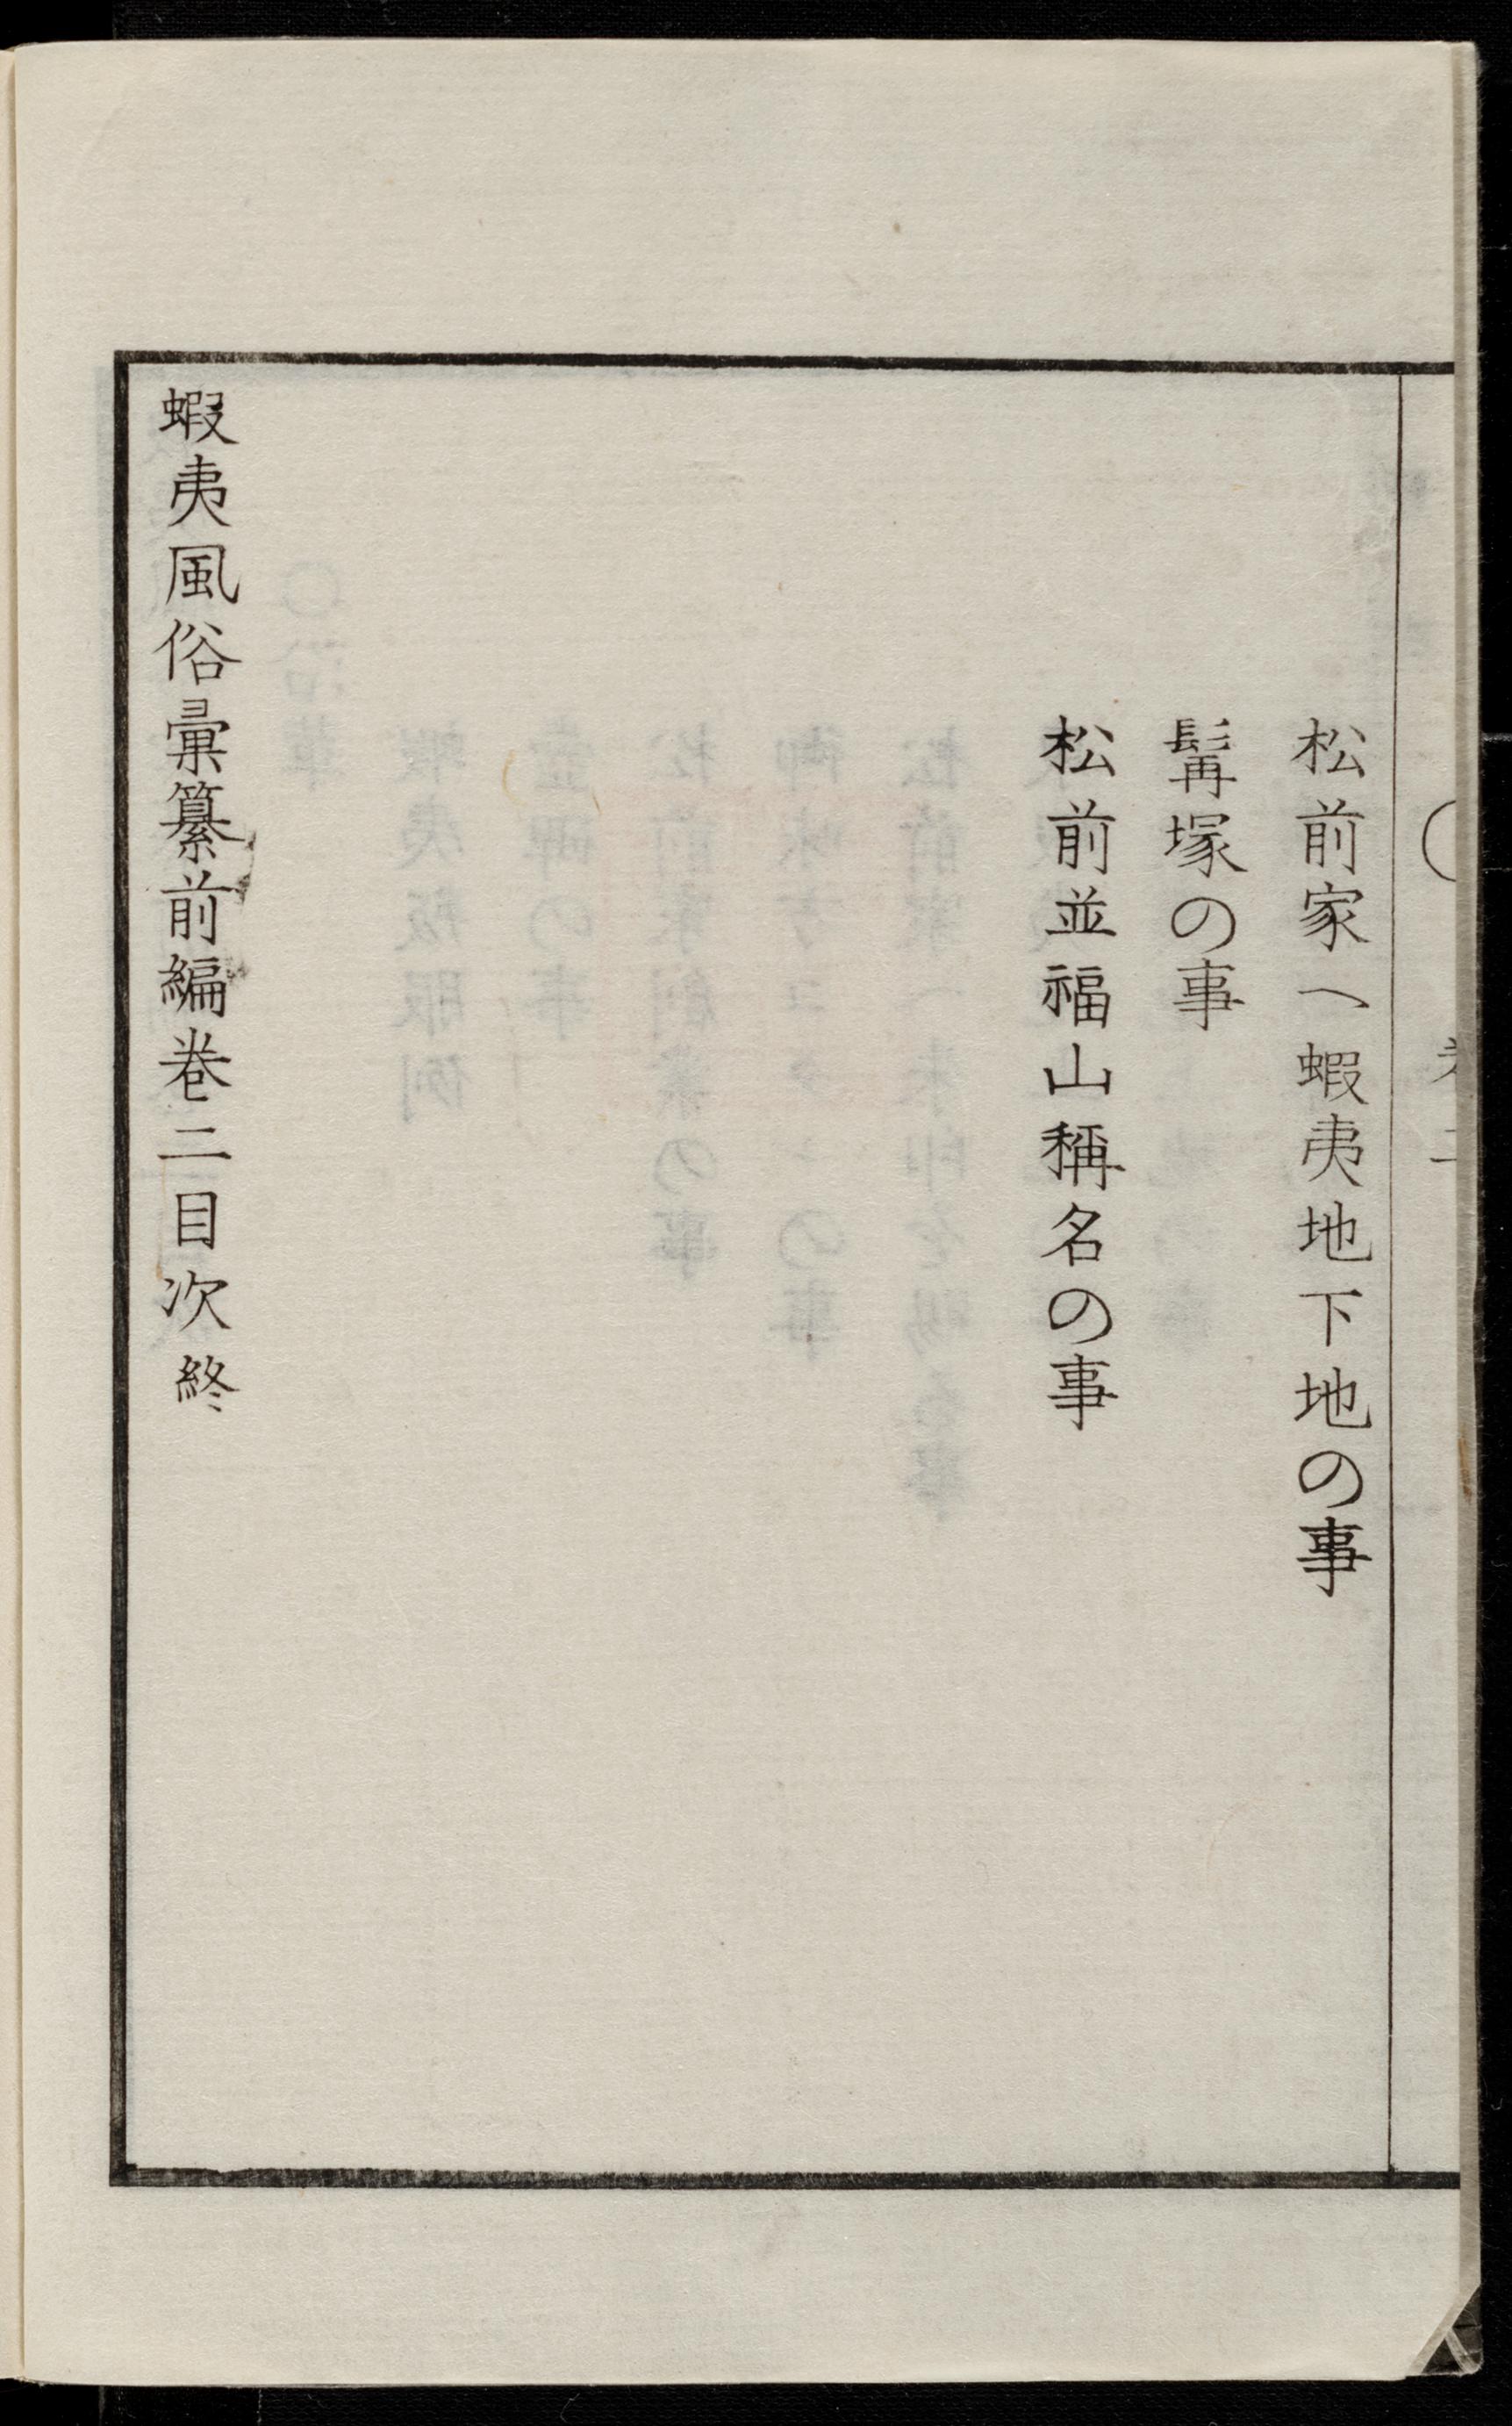 松前家へ蝦夷地下地の事
髯塚の事
松前並福山稱名の事
蝦夷風俗彙纂前編巻二目次終